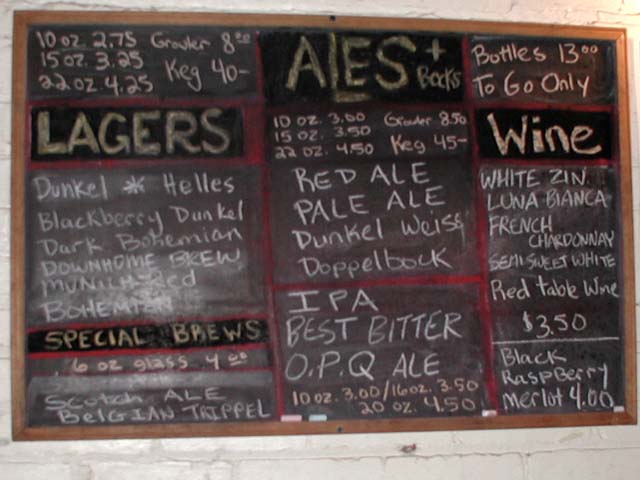 10 oz. 2.75 Growler 8.00
15 oz. 3.25
22 oz. 4.25 Keg 40-
LAGERS
Dunkel * Helles
Blackberry Dunkel
Dark Bohemian
DOWNHOME BREW
MUNICH Red
BOHEMIAN
SPECIAL BREWS
6 oz glass 4.00
Scotch ALE
BELGIAN TRIPPEL
ALES + Bocks
10 oz. 3.00 Growler 8.50
15 oz. 3.50
22 oz. 4.50 Keg 45-
RED ALE
PALE ALE
Dunkel Weiss
Doppelbock
IPA
BEST BITTER
O.P.Q ALE
10 oz. 3.00/16oz. 3.50
20 oz. 4.50
Bottles 13.00
To Go Only
Wine
WHITE ZIN.
LUNA BIANCA
FRENCH
CHARDONNAY
SEMI SWEET WHITE
Red table Wine
$3.50
Black
RaspBerry
Merlot 4.00